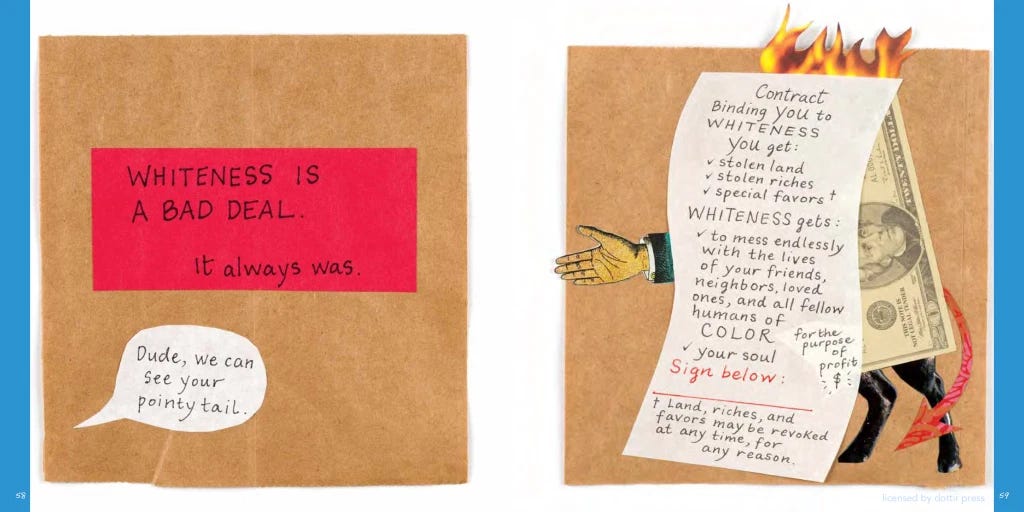 WHITENESS IS
A BAD DEAL.
It always was.
Dude, we can
see your
pointy tail.
58
Contract
Binding YOU to
WHITENESS
You get:
✓ stolen land
✓ stolen riches
✓ special favors †
WHITENESS gets:
✓ to mess endlessly
with the lives
of your friends,
neighbors, loved
ones, and all fellow
humans of
COLOR
✓ your soul
for the
purpose
of
profit
$
Sign below:
† Land, riches, and
favors may be revoked
at any time, for
any reason.
THIS NOTE IS
NOT LEGAL TENDER
licensed by dottir press
59